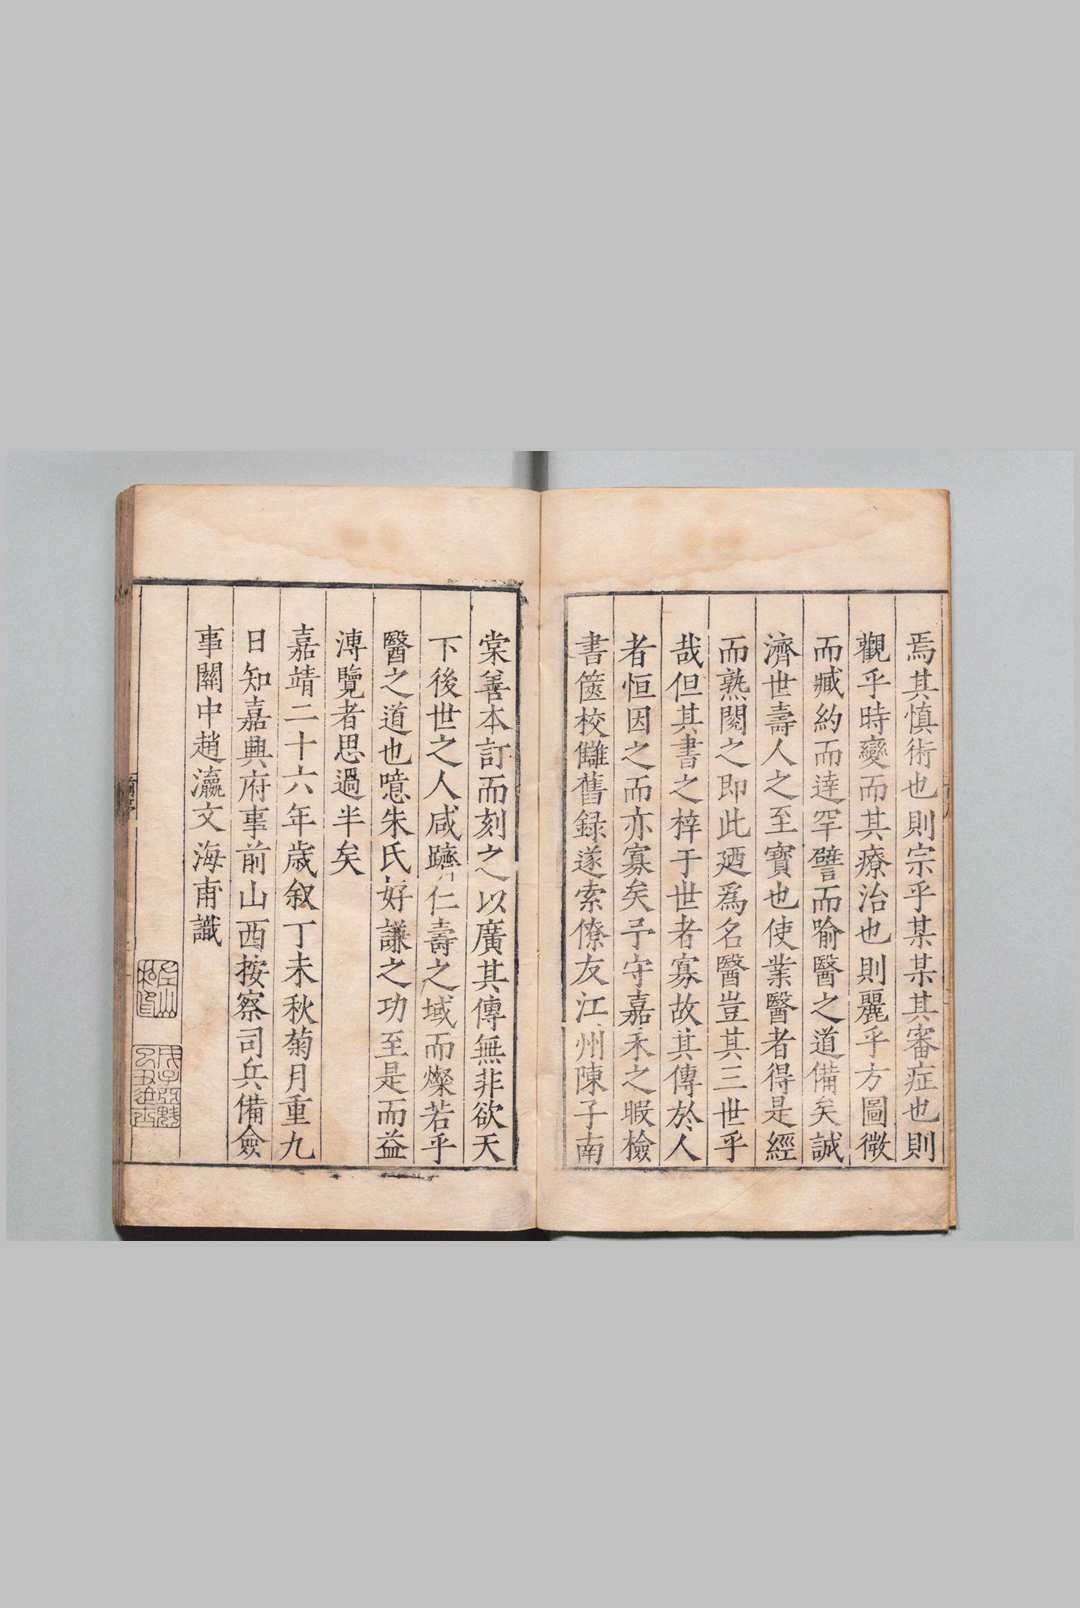 焉其慎術也則宗乎某某其審症也則
觀乎時變而其療治也則麗乎方圖微
而臧約而達罕譬而喻醫之道備矣誠
濟世壽人之至寶也使業醫者得是經
而熟閱之即此廼爲名醫豈其三世乎
哉但其書之梓于世者寡故其傳於人
者恒因之而亦寡矣予守嘉禾之暇檢
書篋校讎舊録遂索僚友江州陳子南
棠善本訂而刻之以廣其傳無非欲天
下後世之人咸躋仁壽之域而燦若乎
醫之道也噫朱氏好謙之功至是而益
溥覽者思過半矣
嘉靖二十六年歲叙丁未秋菊月重九
日知嘉興府事前山西按察司兵備僉
事關中趙瀛文海甫識